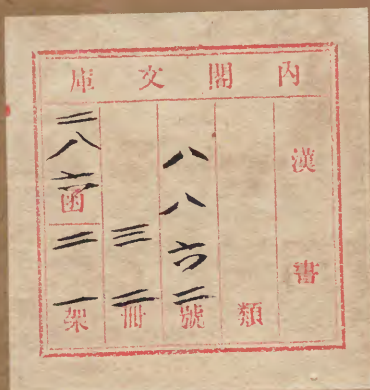 内閣文庫
漢書
類
八八六二號
三二冊
二八六函
二一架